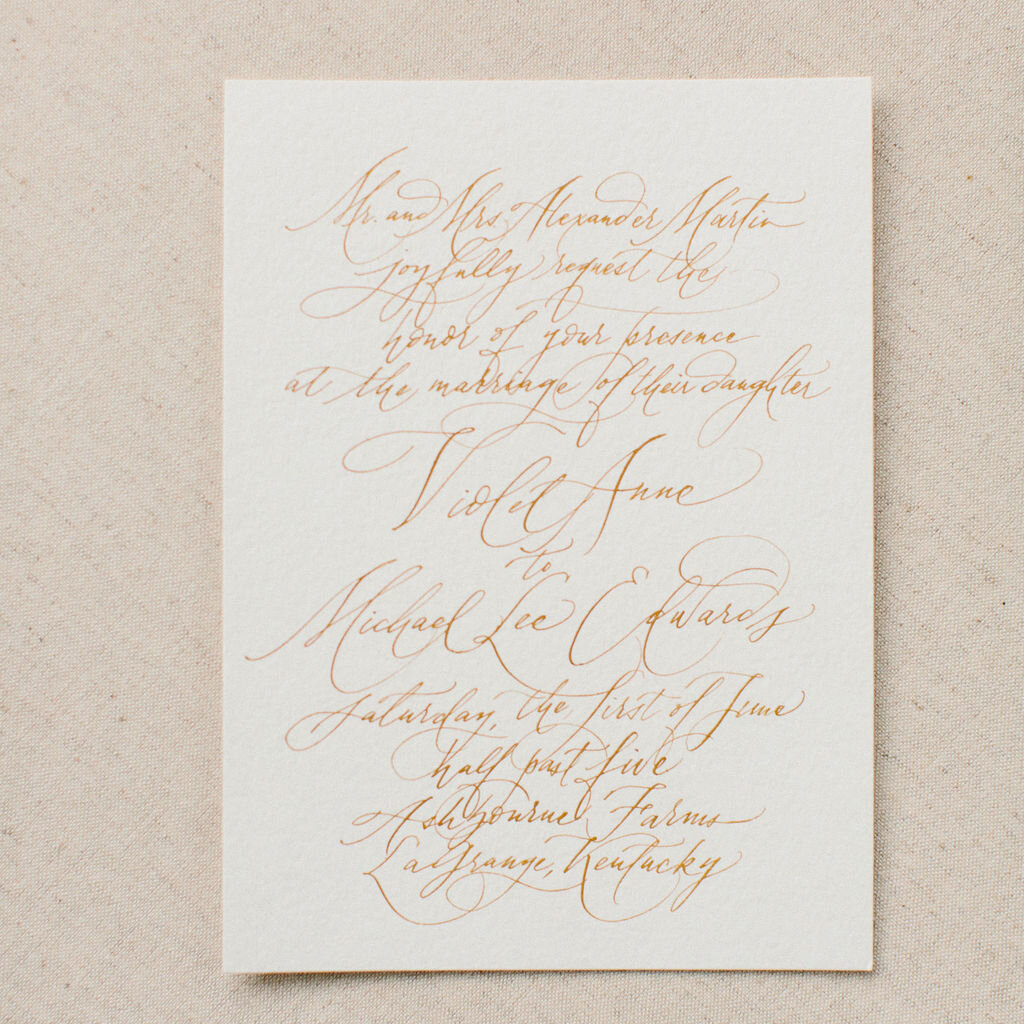 Mr. and Mrs. Alexander Martin
joyfully request the
honor of your presence
at the marriage of their daughter
Violet Anne
to
Michael Lee Edwards
saturday, the first of June
half past five
Ashbourne Farms
LaGrange, Kentucky